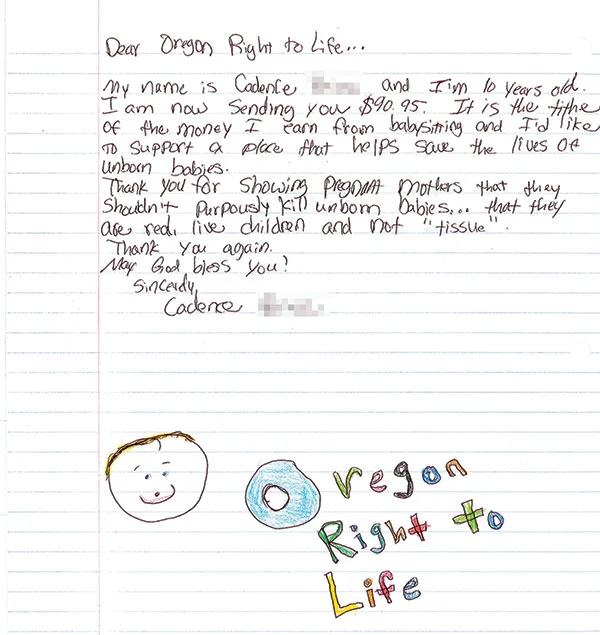 Dear Oregon Right to Life...
My name is Cadence and I'm 10 years old.
I am now sending you $90.95. It is the tithe
of the money I earn from babysitting and I'd like
to support a place that helps save the lives of
unborn babies.
Thank you for showing pregnant mothers that they
shouldn't purpously kill unborn babies... that they
are real, live children and not "tissue".
Thank you again.
May God bless you!
Sincerely,
Cadence
Oregon
Right to
Life